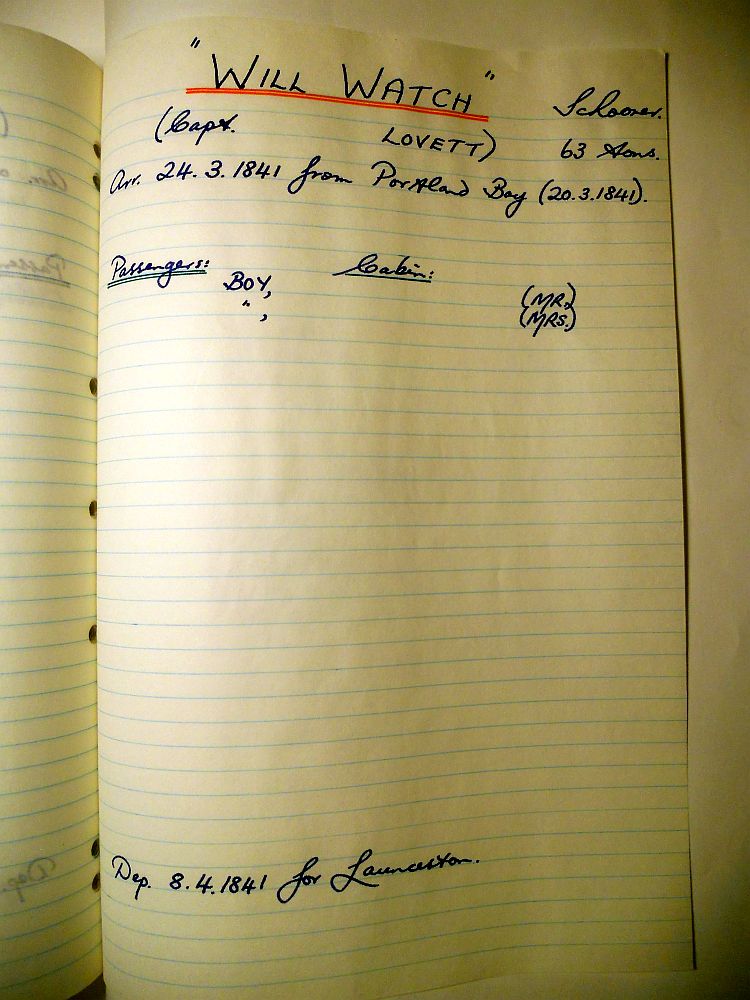 "WILL WATCH" Schooner.
(Capt. LOVETT) 63 tons.
Arr. 24.3.1841 from Portland Bay (20.3.1841).
Passengers: Cabin:
BOY, (MR.)
" , (MRS.)
Dep. 8.4.1841 for Launceston.